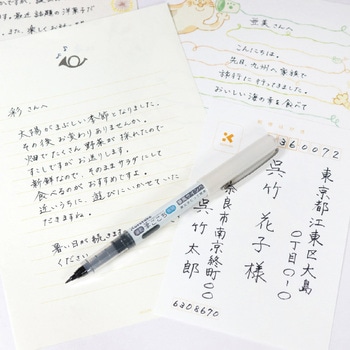 す。最近話題の洋菓子で
亜美さんへ
こんにちは。
先日、九州へ家族で
旅行に行ってきました。
おいしい海の幸を食べて
彩さんへ
太陽がまぶしい季節となりました。
その後お変わりありませんか。
畑でたくさん野菜が採れたので
すこしですがお送りします。
新鮮なので、そのままサラダにして
食べるのがおすすめですよ。
近いうちに、遊びにいかせていた
だきますね。
暑い日が続きます
ください
360072
東京都江東区大島
〇丁目〇ー〇
呉竹花子様
奈良市南京終町〇〇
呉竹太郎
6308670